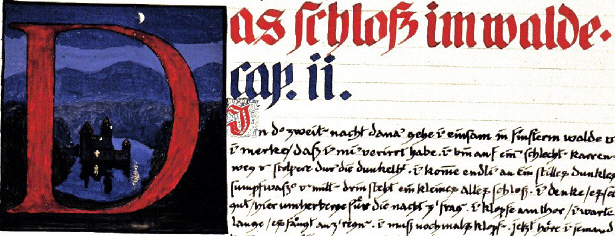 Das schloß im walde.
cap. ii.
In d zweit nacht dana gehe i einsam in finsterm walde u
i merke, daß i mi verirrt habe. i bin auf ein schlecht karren-
weg u stolpere dur die dunkelht. i kome endli an ein stilles dunkles
sumpfwaß u mitt drin steht ein kleines altes schloß. i denke, es sei
gut, hier um herberge für die nacht z frag. i klopfe am thor, i warte
lange, es fängt an z regn. i muß nochmals klopf. jetzt höre i jemand